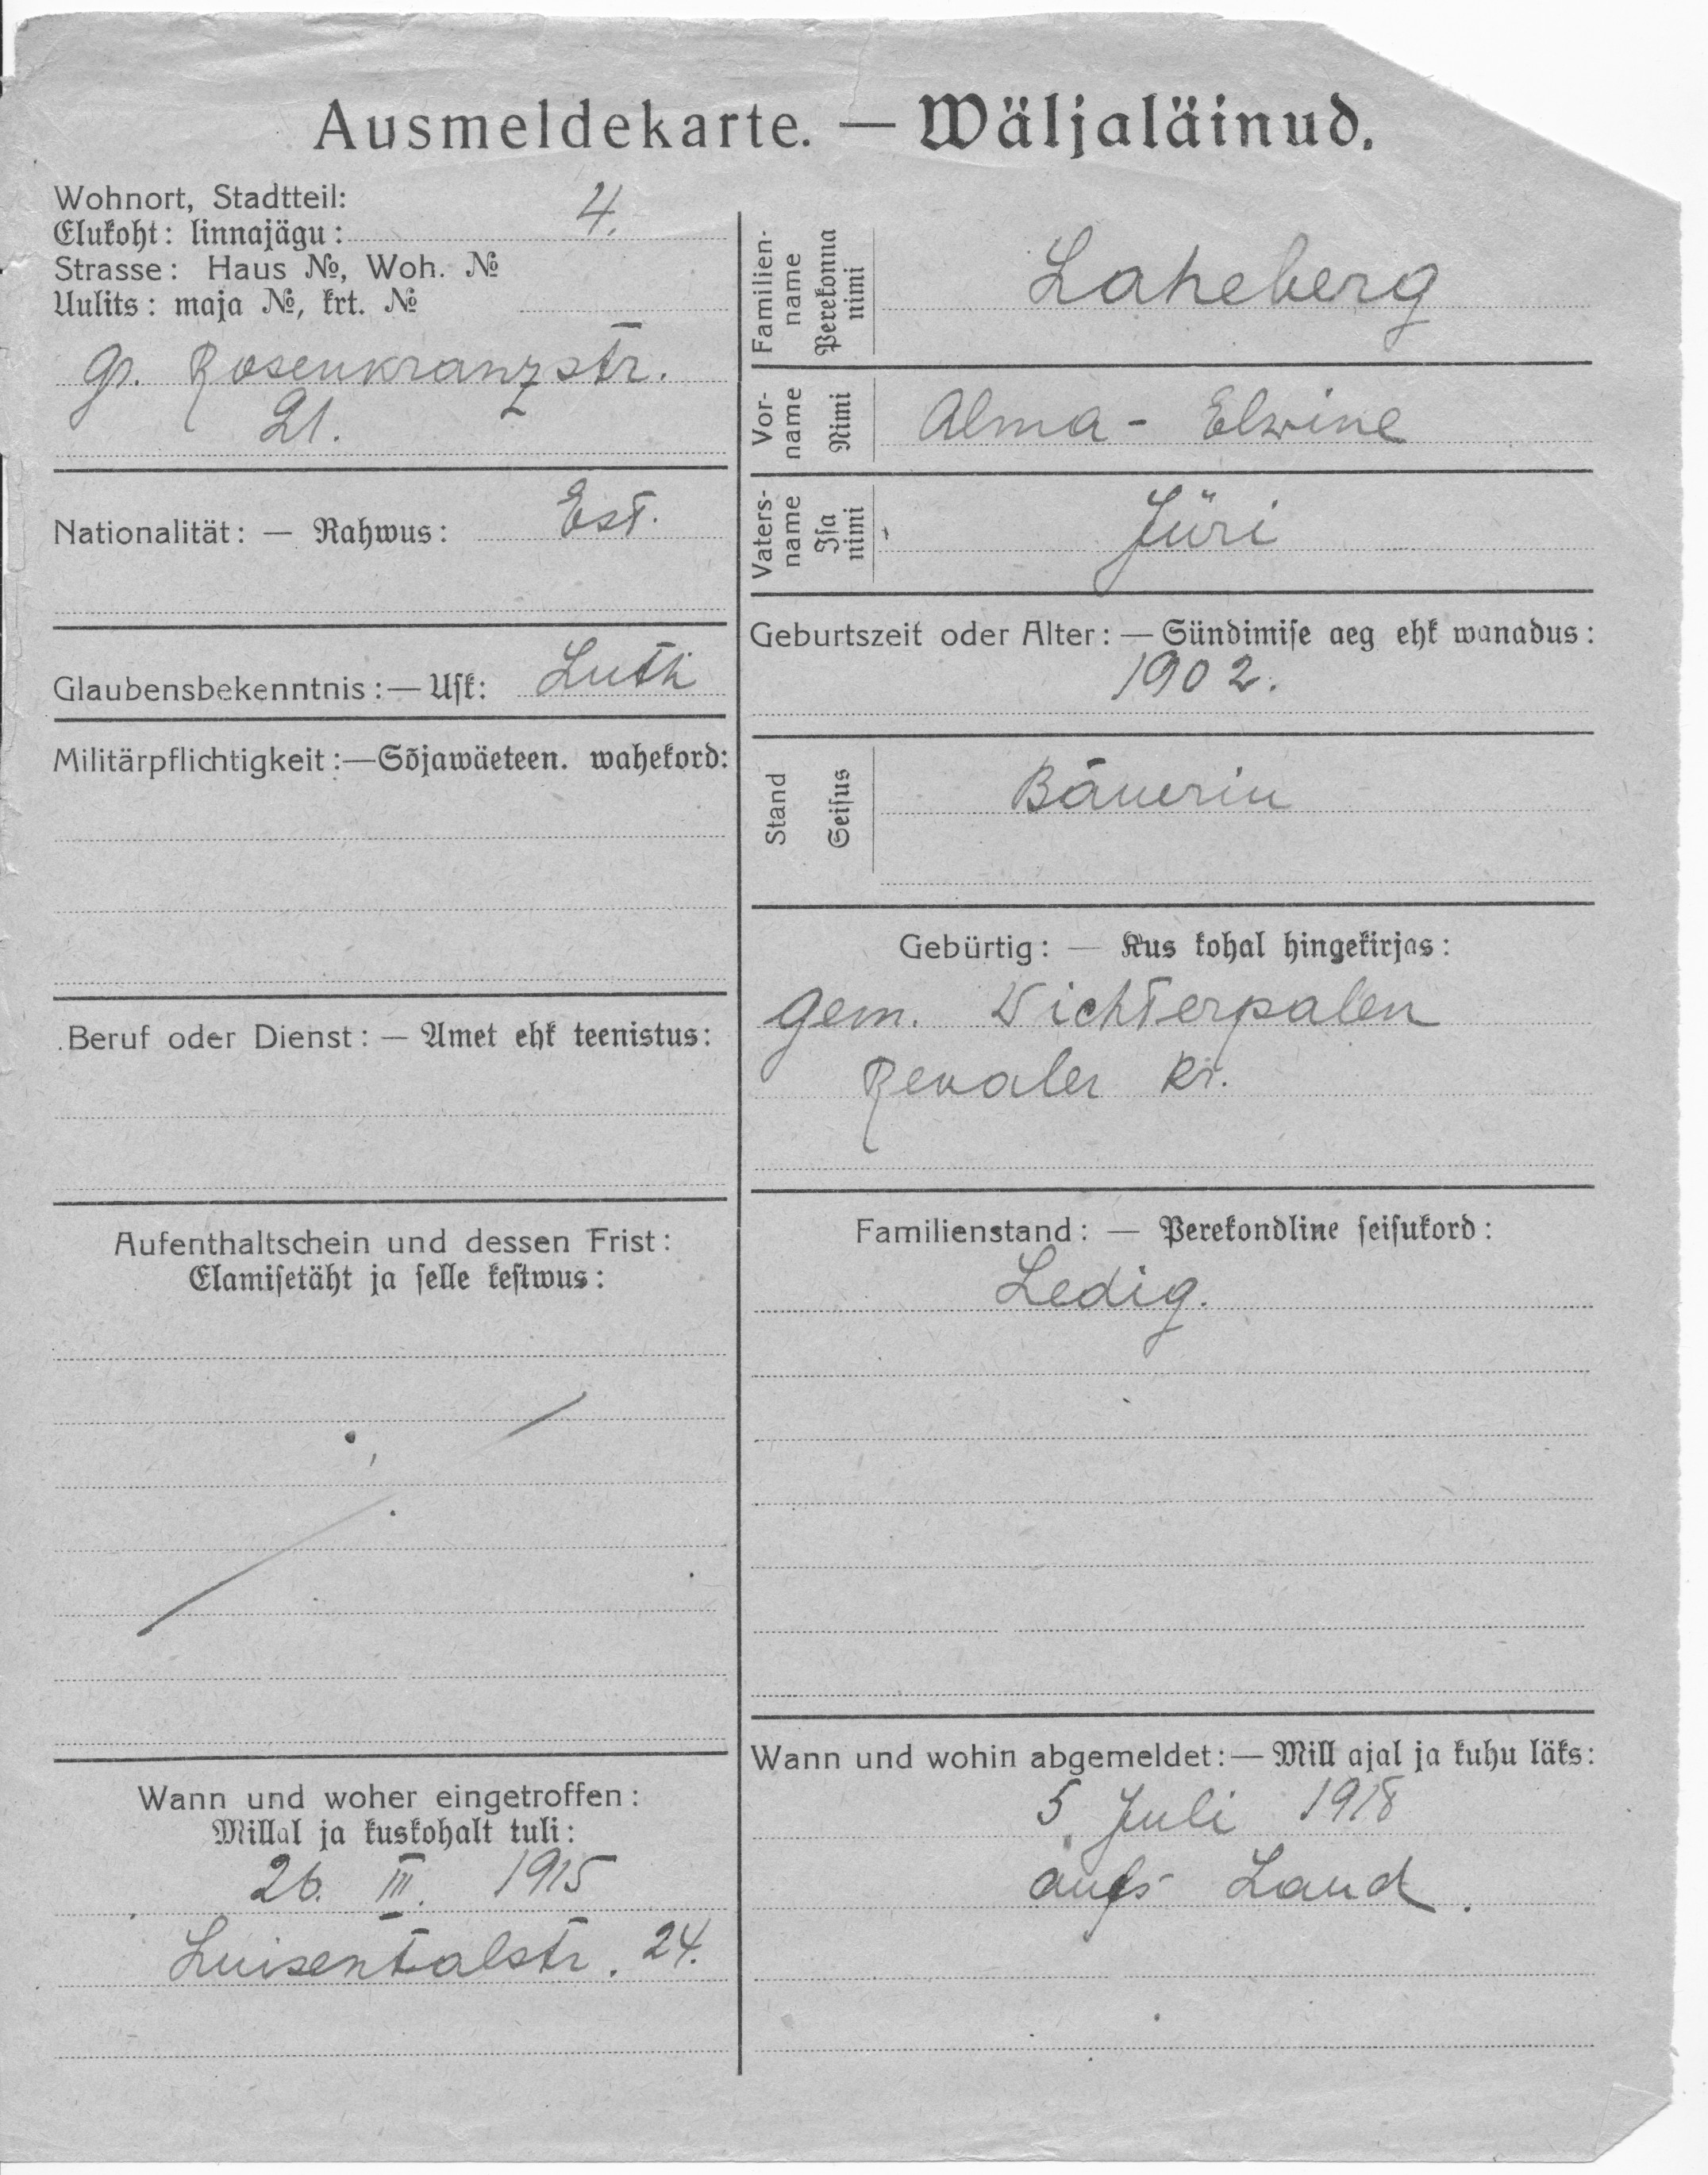 Ausmeldekarte. — Wäljaläinud.
Wohnort, Stadtteil:
Elukoht: linnajägu: 4.
Strasse: Haus №, Woh. №
Uulits: maja №, krt. №
gr. Rosenkranzstr.
21.
Nationalität: — Rahwus: Est.
Glaubensbekenntnis: — Usk: Luth
Militärpflichtigkeit: — Sõjawäeteen. wahekord:
Beruf oder Dienst: — Amet ehk teenistus:
Aufenthaltschein und dessen Frist:
Elamisetäht ja selle kestwus:
Wann und woher eingetroffen:
Millal ja kuskohalt tuli:
26. III. 1915
Luisentalstr. 24.
Familien-
name
Perekonna
nimi
Laheberg
Vor-
name
Nimi
Alma - Elwine
Vaters-
name
Isa
nimi
Jüri
Geburtszeit oder Alter: — Sündimise aeg ehk wanadus:
1902.
Stand
Seisus
Bäuerin
Gebürtig: — Kus kohal hingekirjas:
Gem. Wichterpalen
Revaler Kr.
Familienstand: — Perekondline seisukord:
Ledig.
Wann und wohin abgemeldet: — Mill ajal ja kuhu läks:
5. Juli 1918
aufs Land.